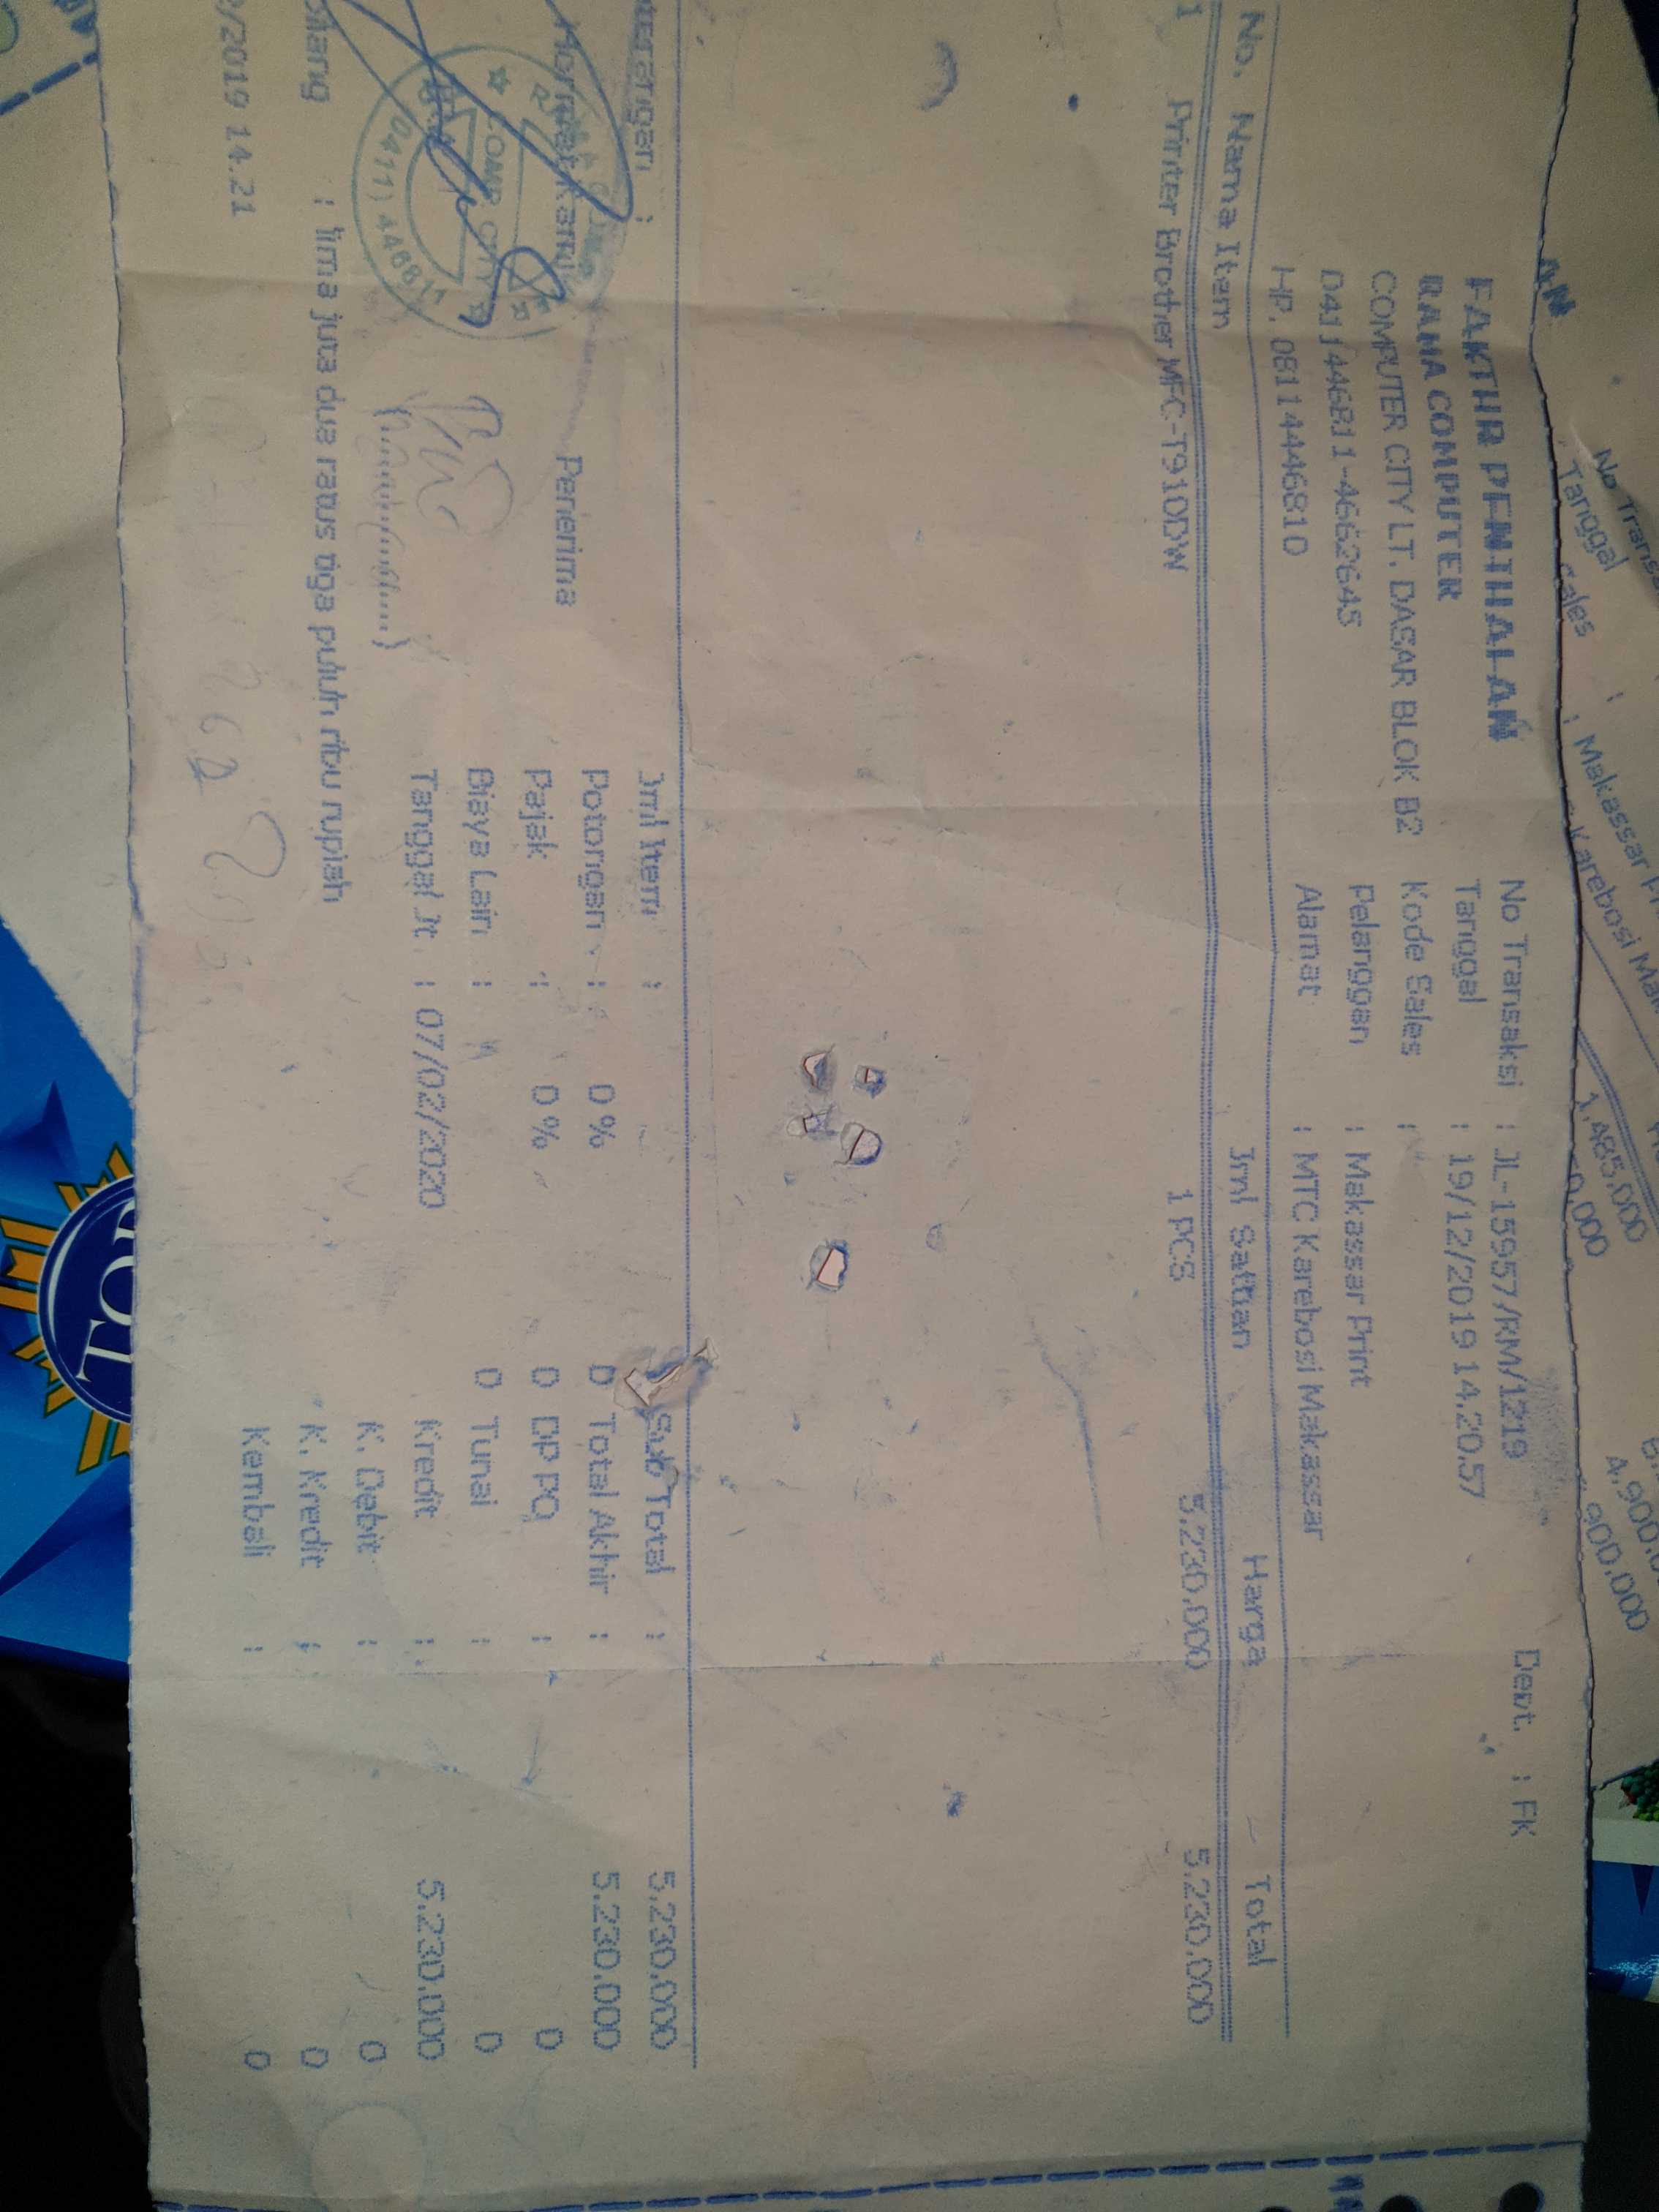 FAKTUR PENJUALAN
RAMA COMPUTER
COMPUTER CITY LT. DASAR BLOK B2
0411446811-4662645
HP. 08114446810
No Transaksi : JL-15957/RM/1219
Tanggal : 19/12/2019 14.20.57
Kode Sales :
Pelanggan : Makassar Print
Alamat : MTC Karebosi Makassar
Dept. : FK
No. Nama Item Jml Satuan Harga Total
1 Printer Brother MFC-T910DW 1 PCS 5.230.000 5.230.000
terangan :
Hormat Kami
Penerima
(..................)
COMP. CITY
(0411) 446811
Jml Item :
Potongan : 0 % 0
Pajak : 0 % 0
Biaya Lain : 0
Tanggal Jt : 07/02/2020
Sub Total : 5.230.000
Total Akhir : 5.230.000
DP PO : 0
Tunai : 0
Kredit : 5.230.000
K. Debit : 0
K. Kredit : 0
Kembali : 0
bilang : lima juta dua ratus tiga puluh ribu rupiah
/2019 14.21
No Trans
Tanggal
Sales
:
: Makassar Pr
Karebosi Mak
1.485.000
0.000
4.900.0
900.000
TOP